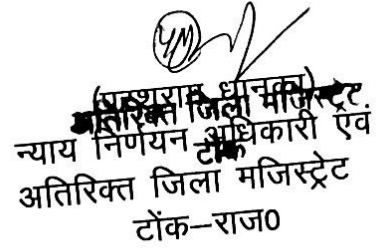 (परशराम धानका)
अतिरिक्त जिला मजिस्ट्रेट
न्याय निर्णयन अधिकारी एवं
टोंक
अतिरिक्त जिला मजिस्ट्रेट
टोंक-राज0